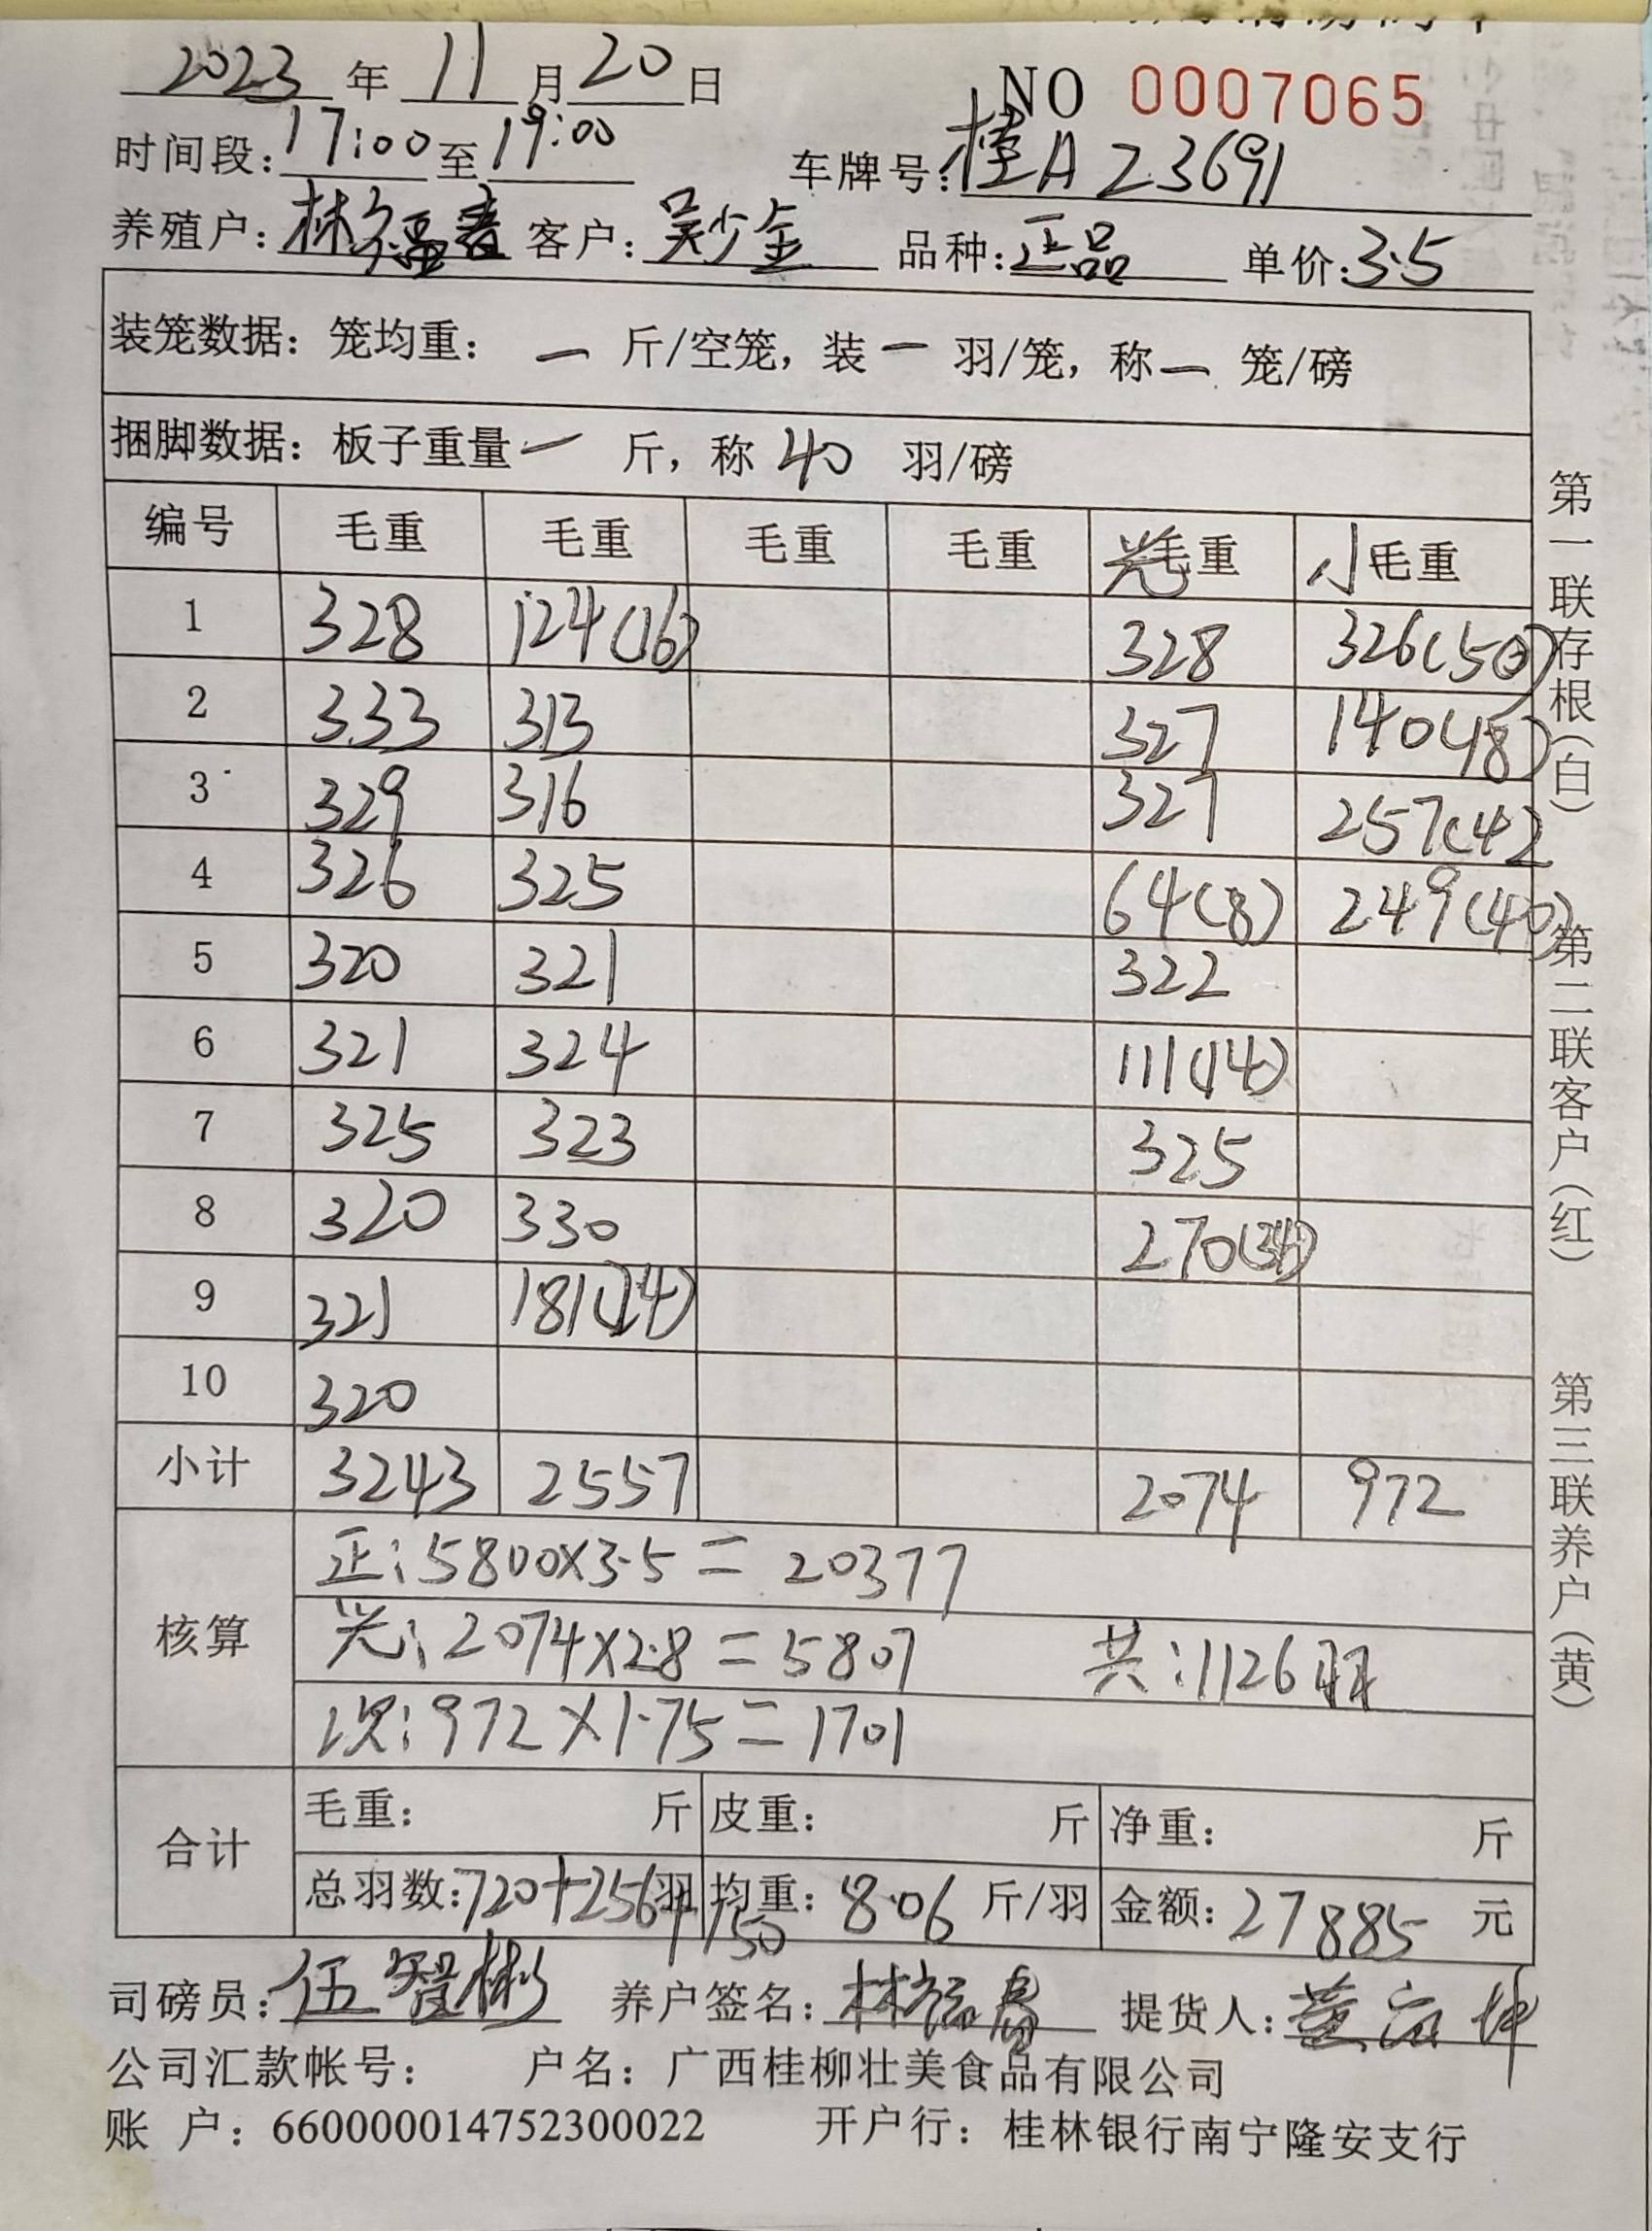 2023 年 11 月 20 日 NO 0007065
时间段: 17:00 至 19:00 车牌号: 桂A23691
养殖户: 林 客户: 吴少金 品种: 正品 单价: 3.5
装笼数据: 笼均重: 一 斤/空笼, 装 一 羽/笼, 称 一 笼/磅
捆脚数据: 板子重量 一 斤, 称 40 羽/磅
编号 毛重 毛重 毛重 毛重 光毛重 小毛重
1 328 124(16) 328 326(50)
2 333 313 327 140(18)
3 329 316 327 257(42
4 326 325 64(8) 249(40)
5 320 321 322
6 321 324 111(14)
7 325 323 325
8 320 330 270(34)
9 321 181(24)
10 320
小计 3243 2557 2074 972
核算
正: 5800×3.5 = 20377
光: 2074×2.8 = 5807 共: 1126羽
次: 972×1.75 = 1701
合计
毛重: 斤 皮重: 斤 净重: 斤
总羽数: 720+256+150 羽 均重: 8.06 斤/羽 金额: 27885 元
司磅员: 伍智彬 养户签名: 林 提货人: 黄
公司汇款帐号: 户名: 广西桂柳壮美食品有限公司
账 户: 660000014752300022 开户行: 桂林银行南宁隆安支行
第一联存根(白) 第二联客户(红) 第三联养户(黄)